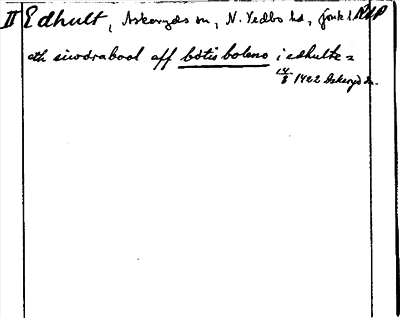 II Edhult, Askeryds sn, N. Vedbo hd, Jönk l. RAP
eth siwdrabool aff bótis boleno i edhulte =
14/8 1422 Askeryd sn.